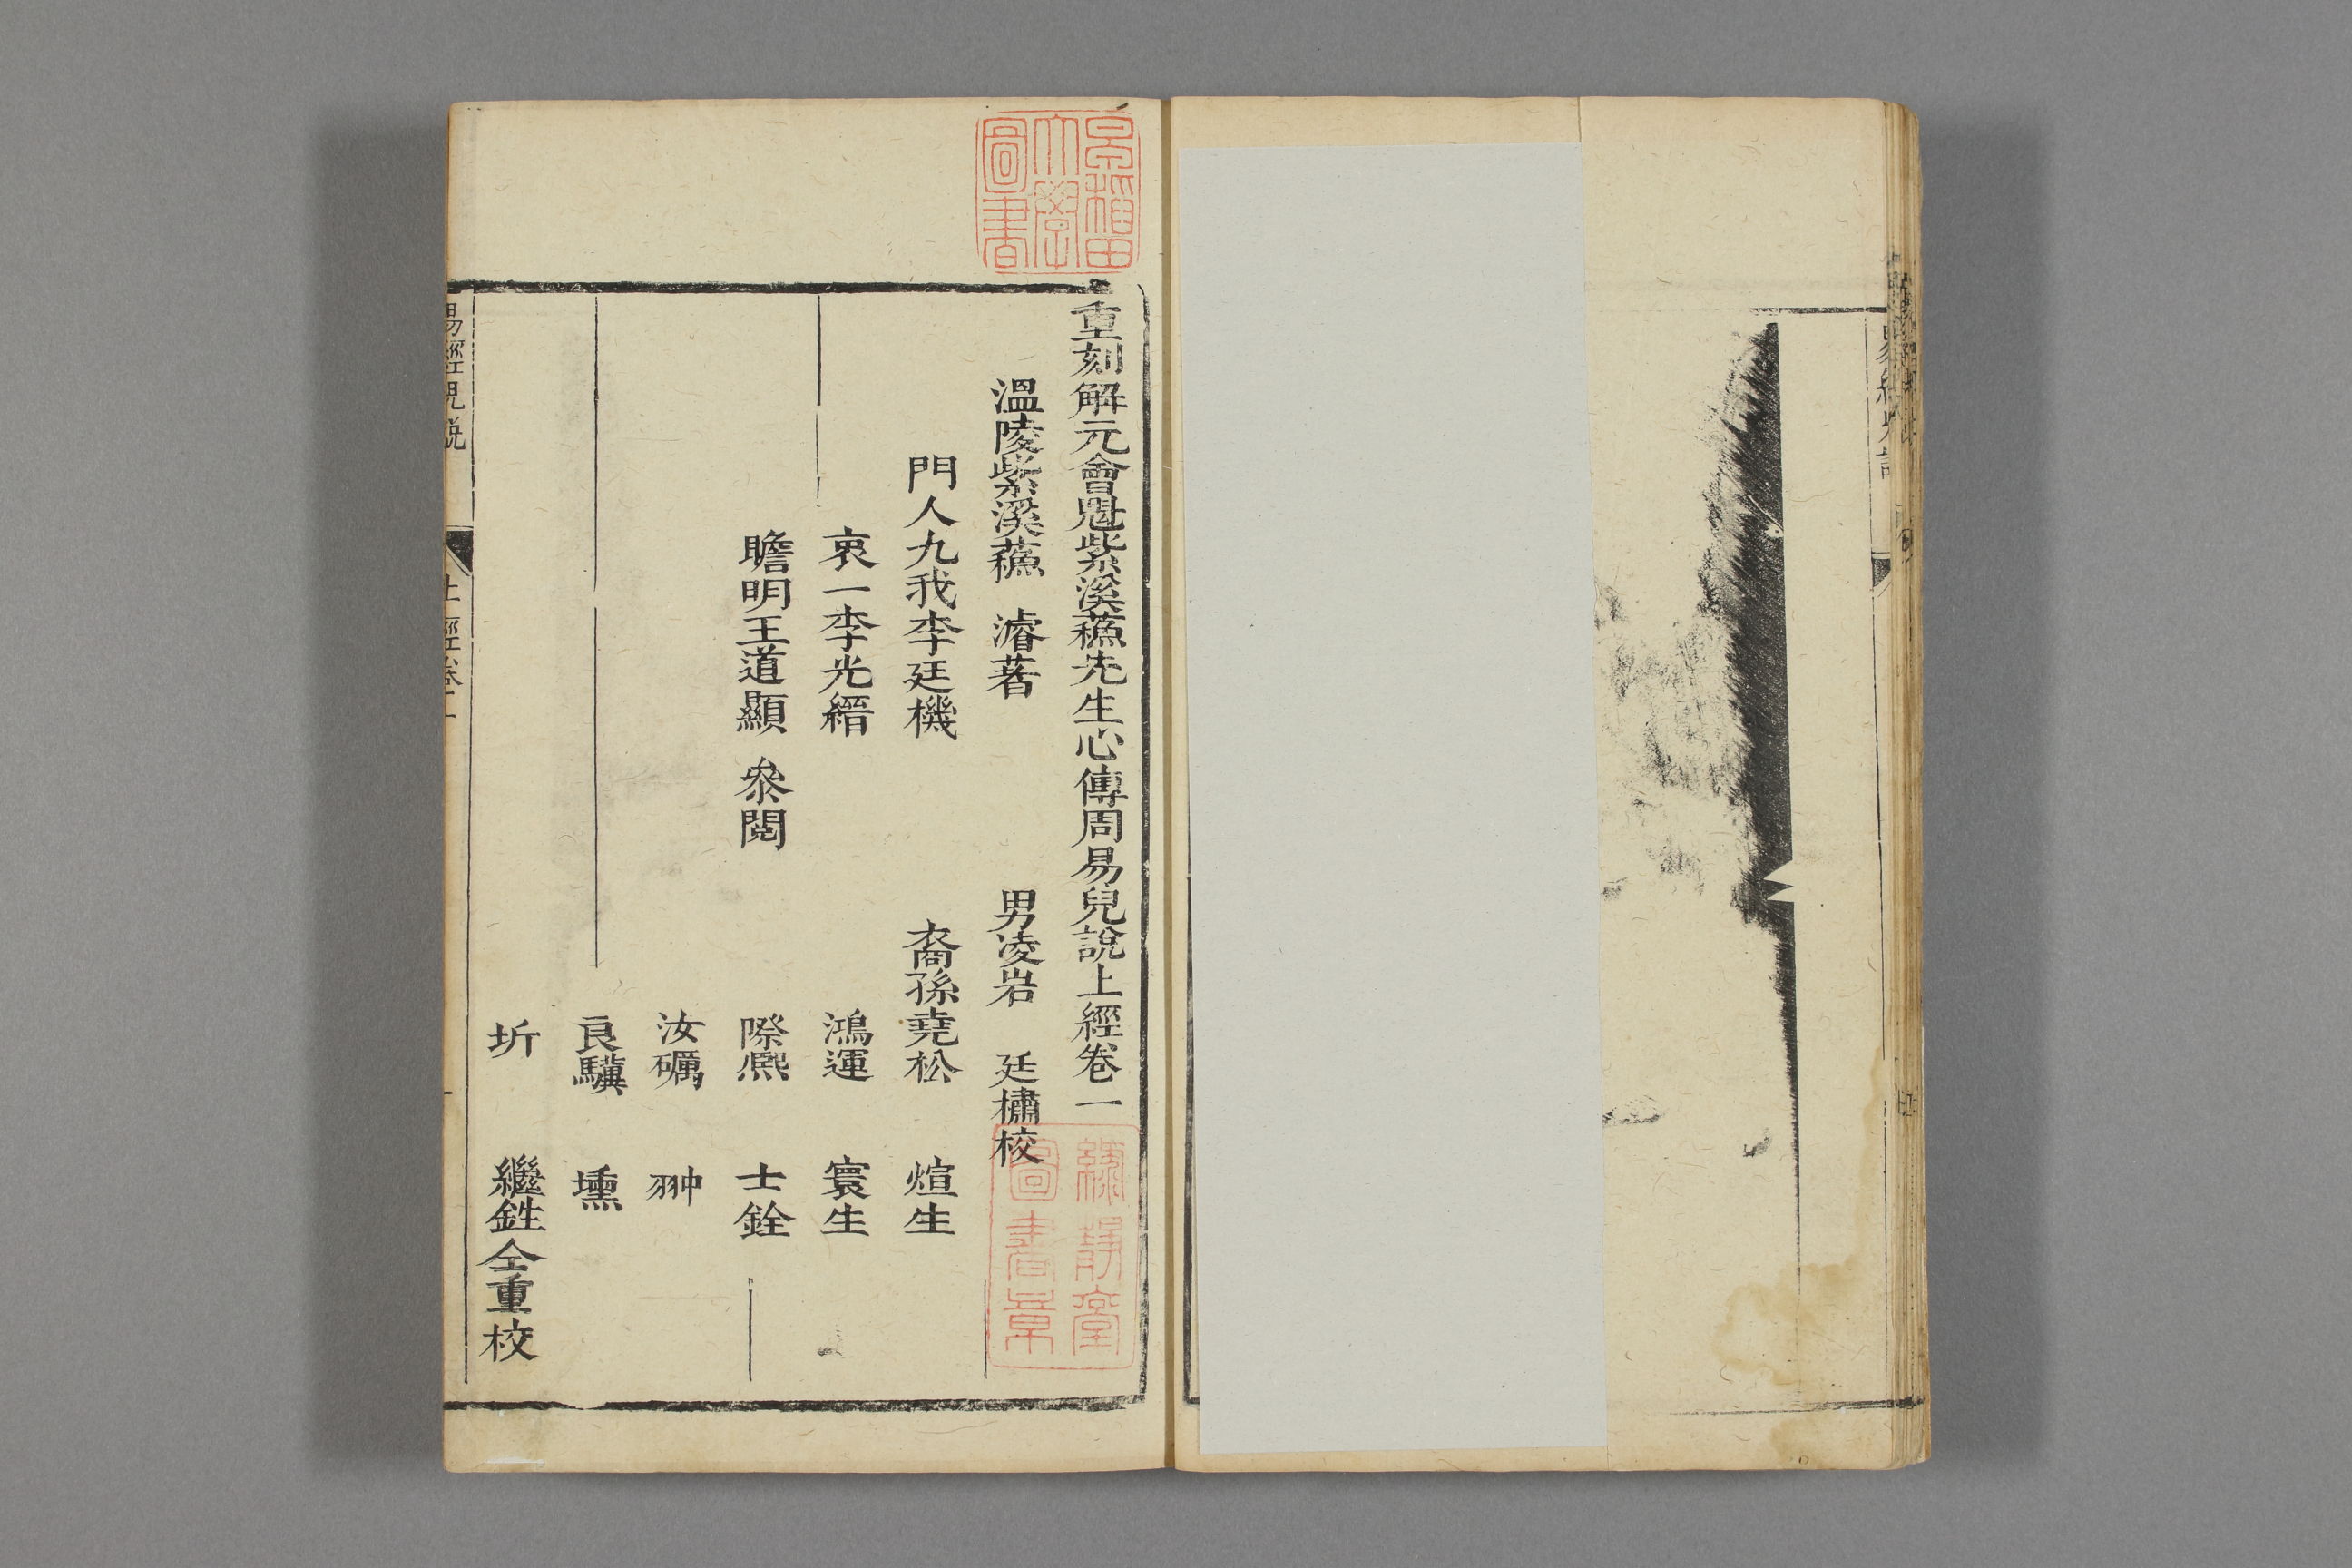 重刻解元會魁紫溪蘓先生心傳周易兒說上經卷一
溫陵紫溪蘓　濬著　男凌岩　廷橚校
門人九我李廷機　裔孫堯松　煊生
衷一李光縉　鴻運　寰生
瞻明王道顯　叅閱　際熈　士銓
汝礪　翀
良驥　壎
圻　繼鉎仝重校
易經兒說　上經卷一
早稲田大學圖書
圖書章